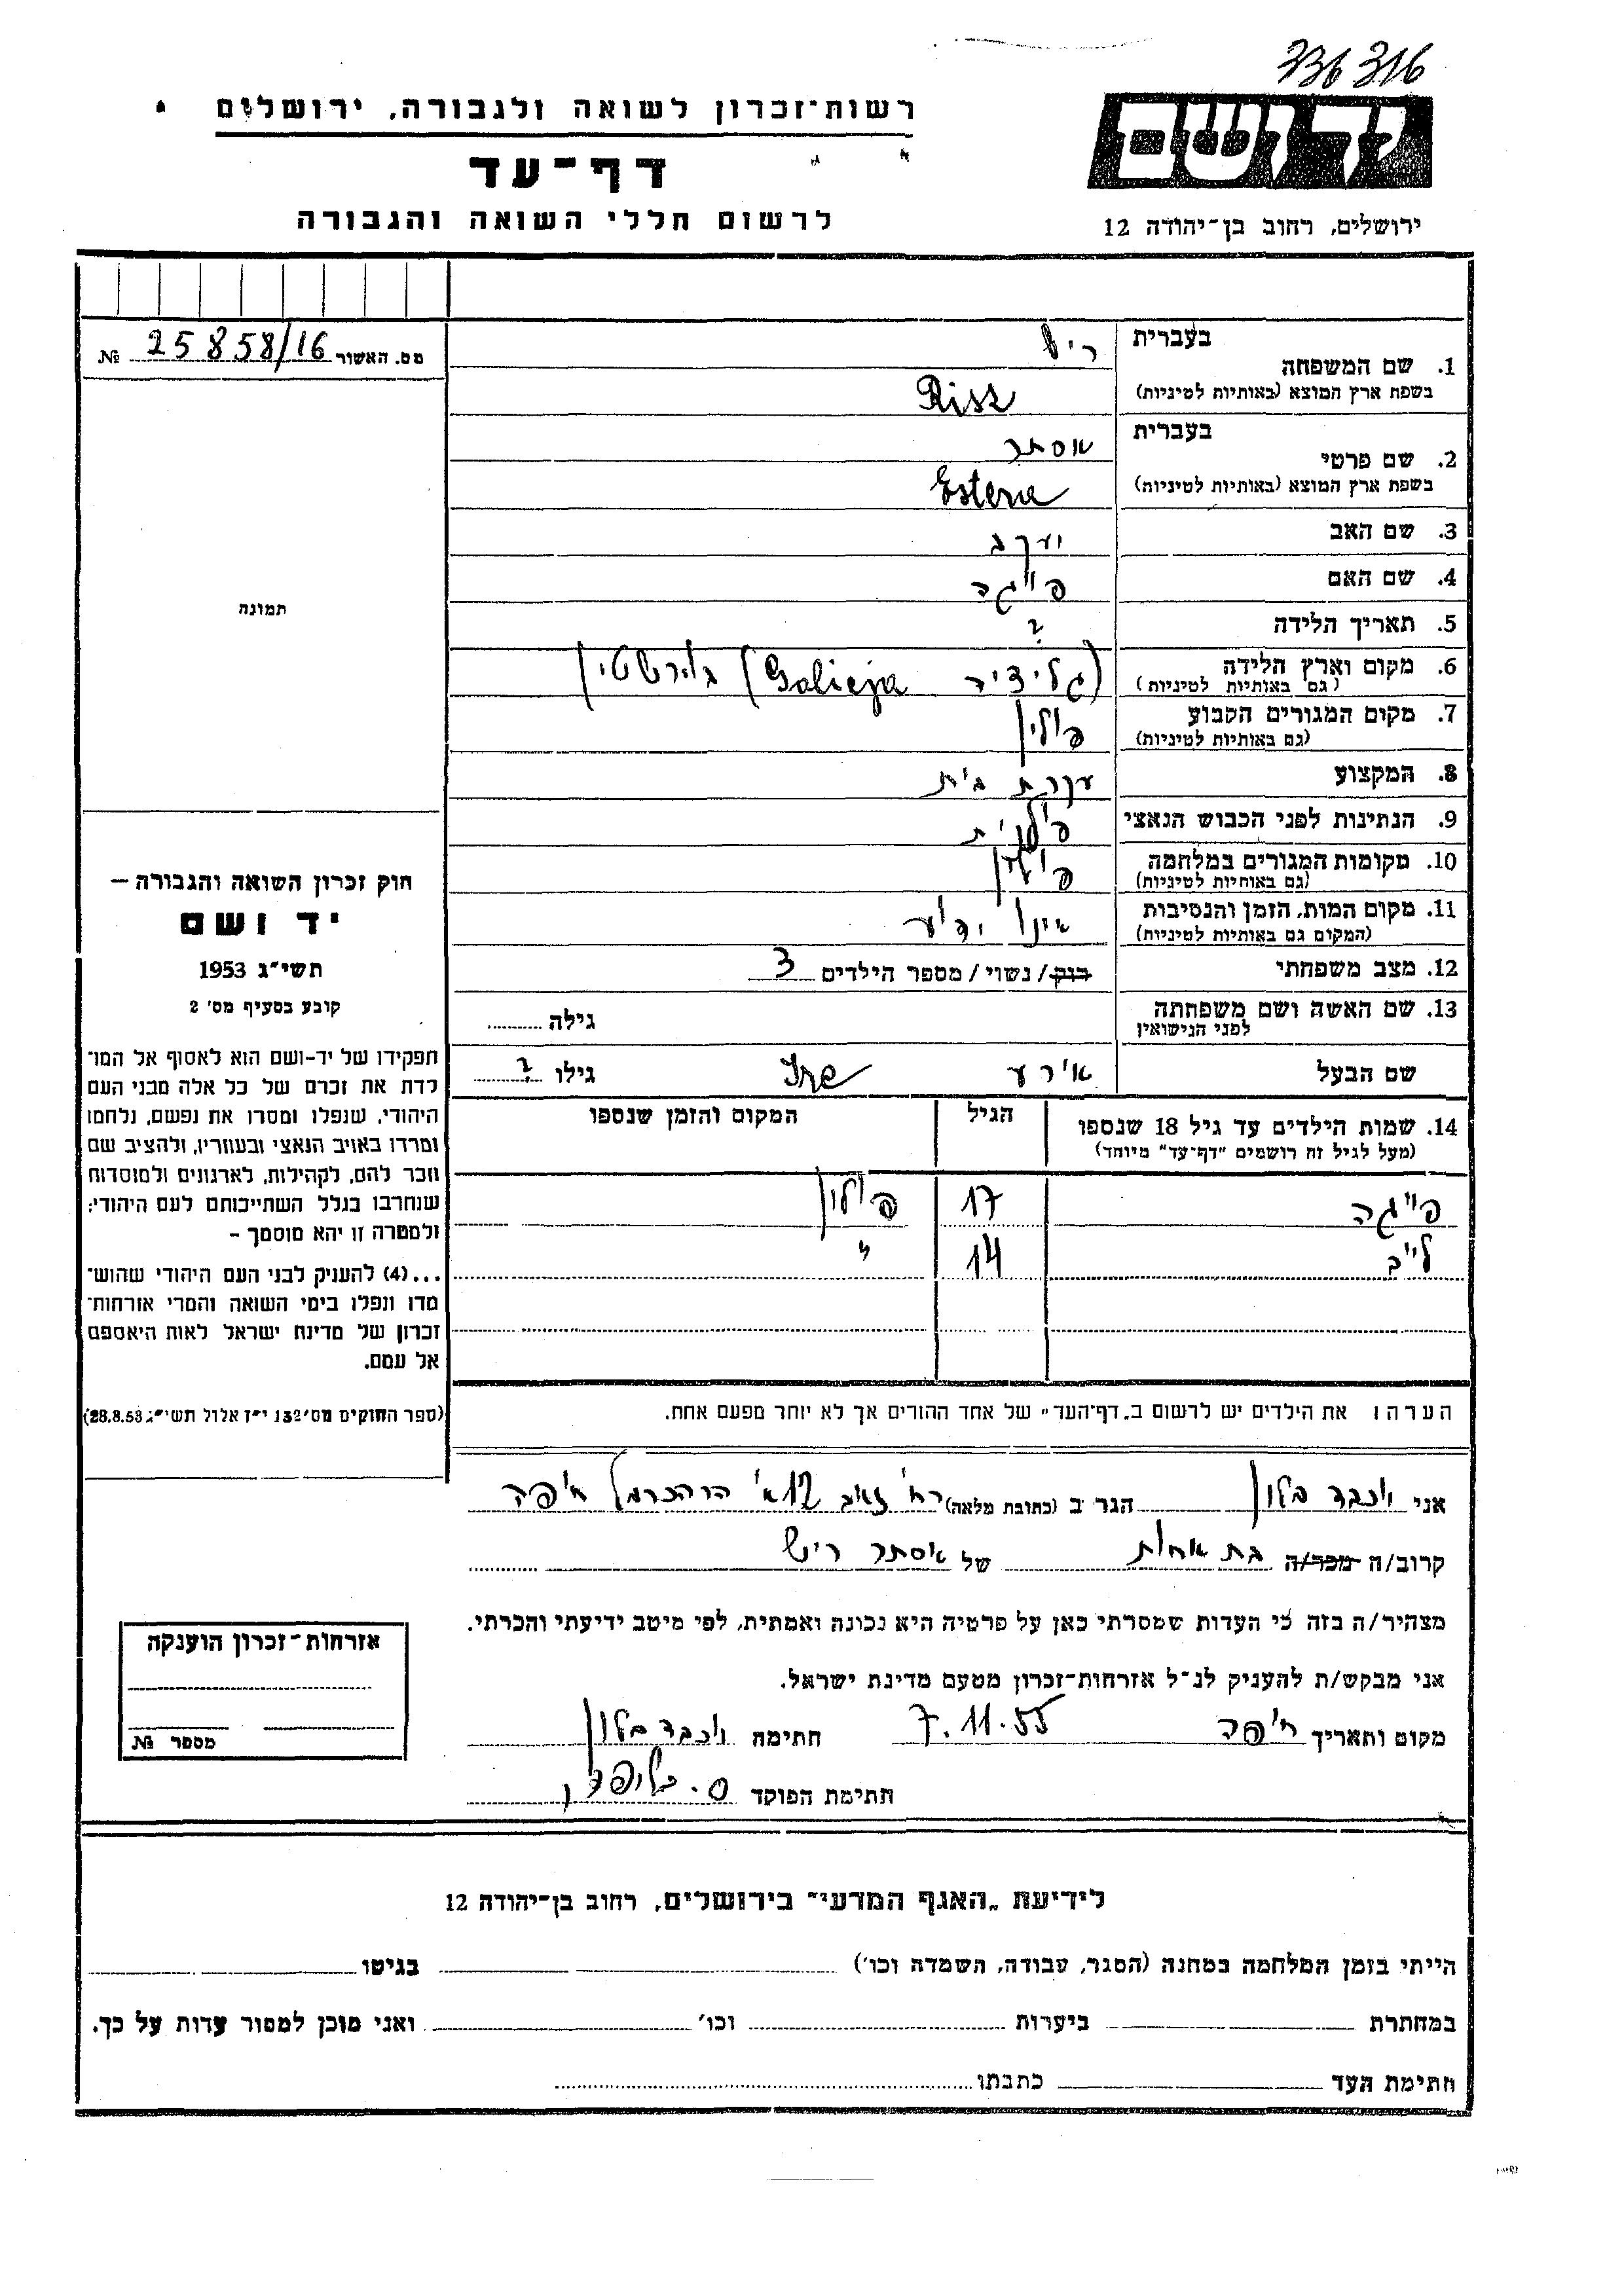 336316
רשות-זכרון לשואה ולגבורה, ירושלים
יד ושם
דף-עד
לרשום חללי השואה והגבורה
ירושלים, רחוב בן-יהודה 12
מס. האשור 25858/16 №
בעברית ריש
1. שם המשפחה
בשפת ארץ המוצא (באותיות לטיניות) Risz
בעברית אסתר
2. שם פרטי
בשפת ארץ המוצא (באותיות לטיניות) Estera
3. שם האב יעקב
4. שם האם פייגה
5. תאריך הלידה ?
6. מקום וארץ הלידה (גליציה Galicja)
(גם באותיות לטיניות)
7. מקום המגורים הקבוע פולין
(גם באותיות לטיניות)
8. המקצוע עקרת בית
9. הנתינות לפני הכבוש הנאצי פולנית
10. מקומות המגורים במלחמה פולין
(גם באותיות לטיניות)
11. מקום המות, הזמן והנסיבות אינו ידוע
(המקום גם באותיות לטיניות)
12. מצב משפחתי רווק/נשוי/מספר הילדים 3
13. שם האשה ושם משפחתה גילה
לפני הנישואין
שם הבעל גילו ?
14. שמות הילדים עד גיל 18 שנספו הגיל המקום והזמן שנספו
(מעל לגיל זה רושמים "דף-עד" מיוחד)
פייגה 17 פולין
לייב 14 "
הערה: את הילדים יש לרשום ב"דף-העד" של אחד ההורים אך לא יותר מפעם אחת.
תמונה
חוק זכרון השואה והגבורה –
יד ושם
תשי"ג 1953
קובע בסעיף מס' 2
תפקידו של יד-ושם הוא לאסוף אל המו-
לדת את זכרם של כל אלה מבני העם
היהודי, שנפלו ומסרו את נפשם, נלחמו
ומרדו באויב הנאצי ובעוזריו, ולהציב שם
וזכר להם, לקהילות, לארגונים ולמוסדות
שנחרבו בגלל השתייכותם לעם היהודי;
ולמטרה זו יהא מוסמך –
...(4) להעניק לבני העם היהודי שהוש-
מדו ונפלו בימי השואה והמרי אזרחות-
זכרון של מדינת ישראל לאות היאספם
אל עמם.
(ספר החוקים מס' 132 י"ז אלול תשי"ג 28.8.53)
אני יוכבד בלון הגר ב (כתובת מלאה) רח' 12א' הר הכרמל חיפה
קרוב/ה מכר/ה בת אחות של אסתר ריש
מצהיר/ה בזה כי העדות שמסרתי כאן על פרטיה היא נכונה ואמתית, לפי מיטב ידיעתי והכרתי.
אני מבקש/ת להעניק לנ"ל אזרחות-זכרון מטעם מדינת ישראל.
מקום ותאריך חיפה 7.11.55 חתימה יוכבד בלון
חתימת הפוקד
אזרחות-זכרון הוענקה
מספר №
לידיעת "האגף המדעי" בירושלים, רחוב בן-יהודה 12
הייתי בזמן המלחמה במחנה (הסגר, עבודה, השמדה וכו') בגיטו
במחתרת ביערות וכו' ואני מוכן למסור עדות על כך.
חתימת העד כתבתו